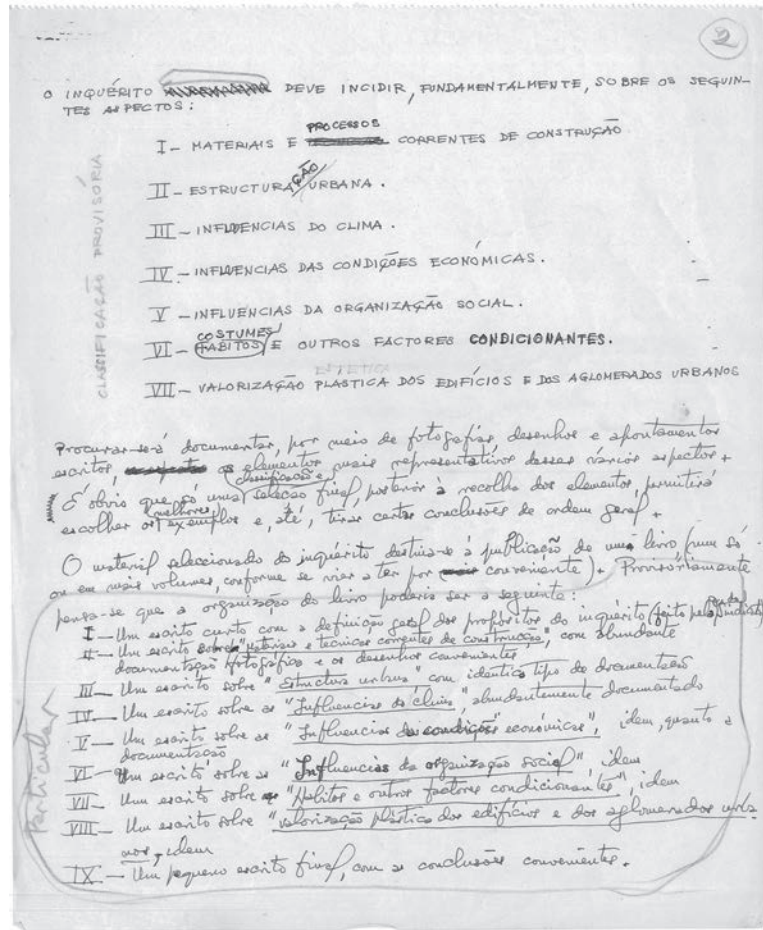 2
O INQUÉRITO DEVE INCIDIR, FUNDAMENTALMENTE, SOBRE OS SEGUIN-
TES ASPECTOS:
PROCESSOS
I - MATERIAIS E CORRENTES DE CONSTRUÇÃO
ÇÃO
II - ESTRUCTURA URBANA.
III - INFLUENCIAS DO CLIMA.
IV - INFLUENCIAS DAS CONDIÇÕES ECONÓMICAS.
V - INFLUENCIAS DA ORGANIZAÇÃO SOCIAL.
COSTUMES
VI - HABITOS E OUTROS FACTORES CONDICIONANTES.
ESTETICA
VII - VALORIZAÇÃO PLASTICA DOS EDIFÍCIOS E DOS AGLOMERADOS URBANOS
CLASSIFICAÇÃO PROVISÓRIA
Procurar-se-á documentar, por meio de fotografias, desenhos e apontamentos
escritos, os elementos mais representativos desses vários aspectos.
classificação e
É obvio que só uma seleção final, posterior à recolha dos elementos, permitirá
melhores
escolher os exemplos e, até, tirar certas conclusões de ordem geral.
O material seleccionado do inquérito destina-se à publicação de um livro (num só
ou em mais volumes, conforme se vier a ter por conveniente). Provisóriamente
pensa-se que a organização do livro poderia ser a seguinte:
I - Um escrito curto com a definição geral dos propósitos do inquérito (feito pelo Sindicato)
II - Um escrito sobre "materiais e tecnicas correntes de construcção", com abundante
documentação fotográfica e os desenhos convenientes
III - Um escrito sobre "Estructura urbana" com identico tipo de documentação
IV - Um escrito sobre as "Influencias do clima" abundantemente documentado
V - Um escrito sobre as "Influencias das condições económicas", idem, quanto a
documentação
VI - Um escrito sobre as "Influencias da organização social", idem
VII - Um escrito sobre "Habitos e outros factores condicionantes", idem
VIII - Um escrito sobre "valorização plástica dos edifícios e dos aglomerados urba-
nos", idem
IX - Um pequeno escrito final, com as conclusões convenientes.
Particular